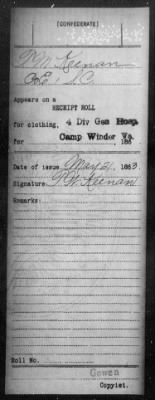 [CONFEDERATE]
P. W. Keenan
Co E, 1 S.C.
Appears on a
RECEIPT ROLL
for clothing, 4 Div Gen Hosp.
for Camp Winder Va. 186
Date of issue May 21, 1863.
Signature P. W. Keenan
Remarks:
Roll No.
Gowen
Copyist.